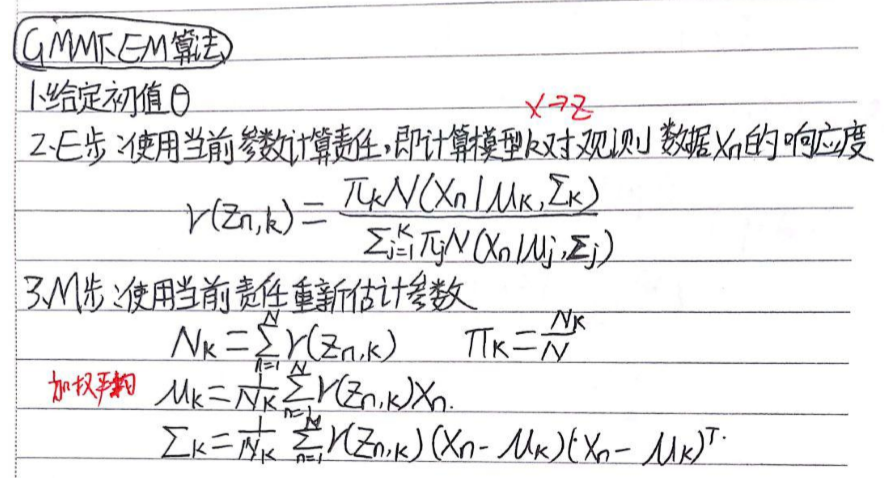 GMM下EM算法
1.给定初值θ
X→Z
2.E步:使用当前参数计算责任,即计算模型k对观测数据Xn的响应度
γ(Zn,k) = πkN(Xn|μk,Σk) / Σj=1K πjN(Xn|μj,Σj)
3.M步:使用当前责任重新估计参数
Nk = Σn=1N γ(Zn,k) πk = Nk/N
加权平均 μk = 1/Nk Σn=1N γ(Zn,k)Xn.
Σk = 1/Nk Σn=1N γ(Zn,k)(Xn-μk)(Xn-μk)T.